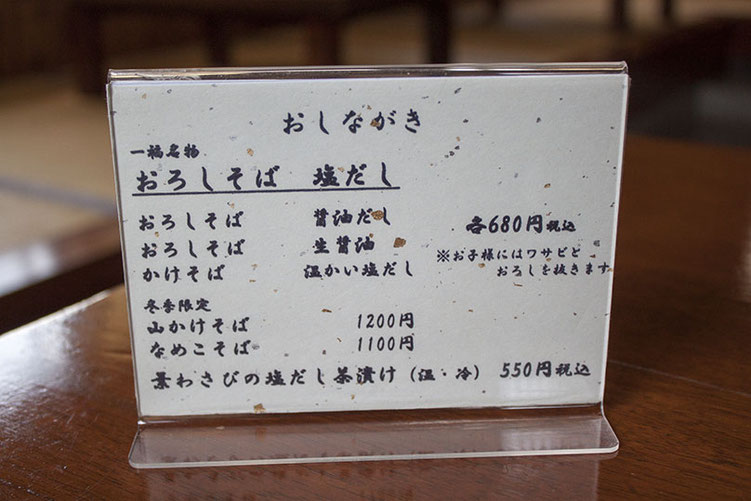 おしながき
一福名物
おろしそば 塩だし
おろしそば 醤油だし 各680円税込
おろしそば 生醤油 ※お子様にはワサビと
おろしを抜きます
かけそば 温かい塩だし
冬季限定
山かけそば 1200円
なめこそば 1100円
葉わさびの塩だし茶漬け（温・冷） 550円税込